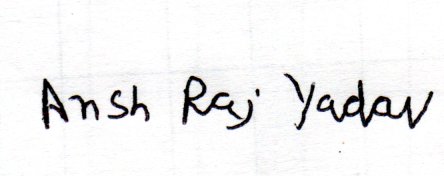 Ansh Raj Yadav